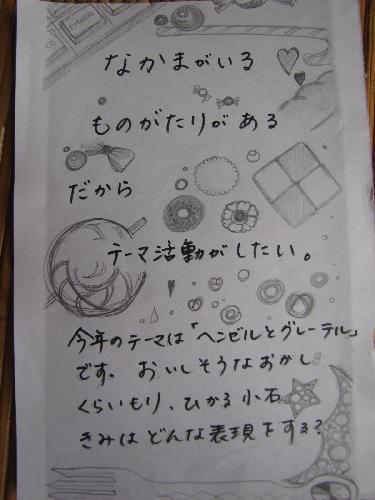 なかまがいる
ものがたりがある
だから
テーマ活動がしたい。
今年のテーマは「ヘンゼルとグレーテル」
です。おいしそうなおかし
くらいもり、ひかる小石
きみはどんな表現をする?